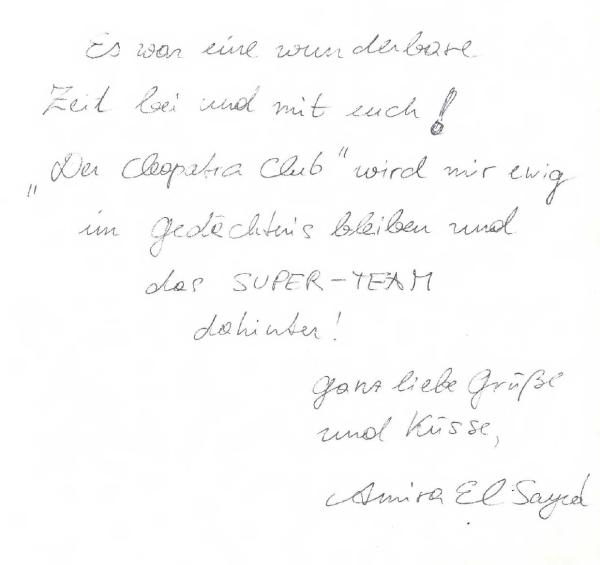 Es war eine wunderbare
Zeit bei und mit euch!
„Der Cleopatra Club“ wird mir ewig
im Gedächtnis bleiben und
das SUPER-TEAM
dahinter!
ganz liebe Grüße
und Küsse,
Amira El Sayed